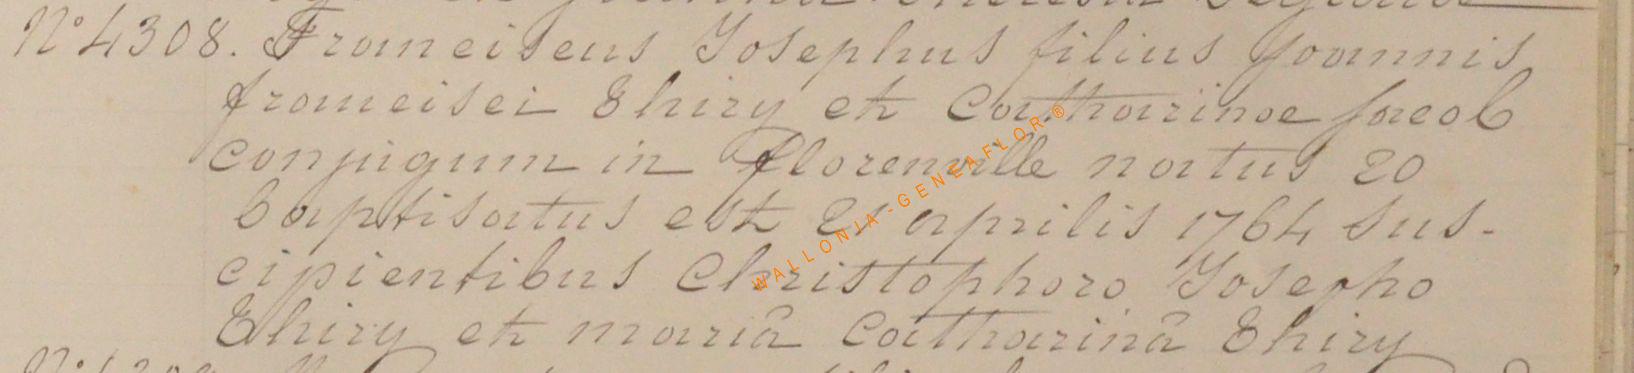 N° 4308. Franciscus Josephus filius Joannis
francisci Thiry et Catharinae Jacob
conjugum in florenville natus 20
baptisatus est 21 aprilis 1764 sus-
cipientibus Christophoro Josepho
Thiry et mariâ Catharinâ Thiry
WALLONIA-GENEAFLOR®